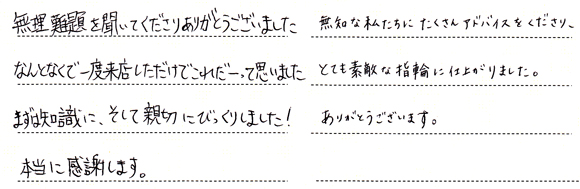 無理難題を聞いてくださりありがとうございました
なんとなくで一度来店しただけでこれだーって思いました
まずは知識に、そして親切にびっくりしました!
本当に感謝します。
無知な私たちにたくさんアドバイスをくださり、
とても素敵な指輪に仕上がりました。
ありがとうございます。